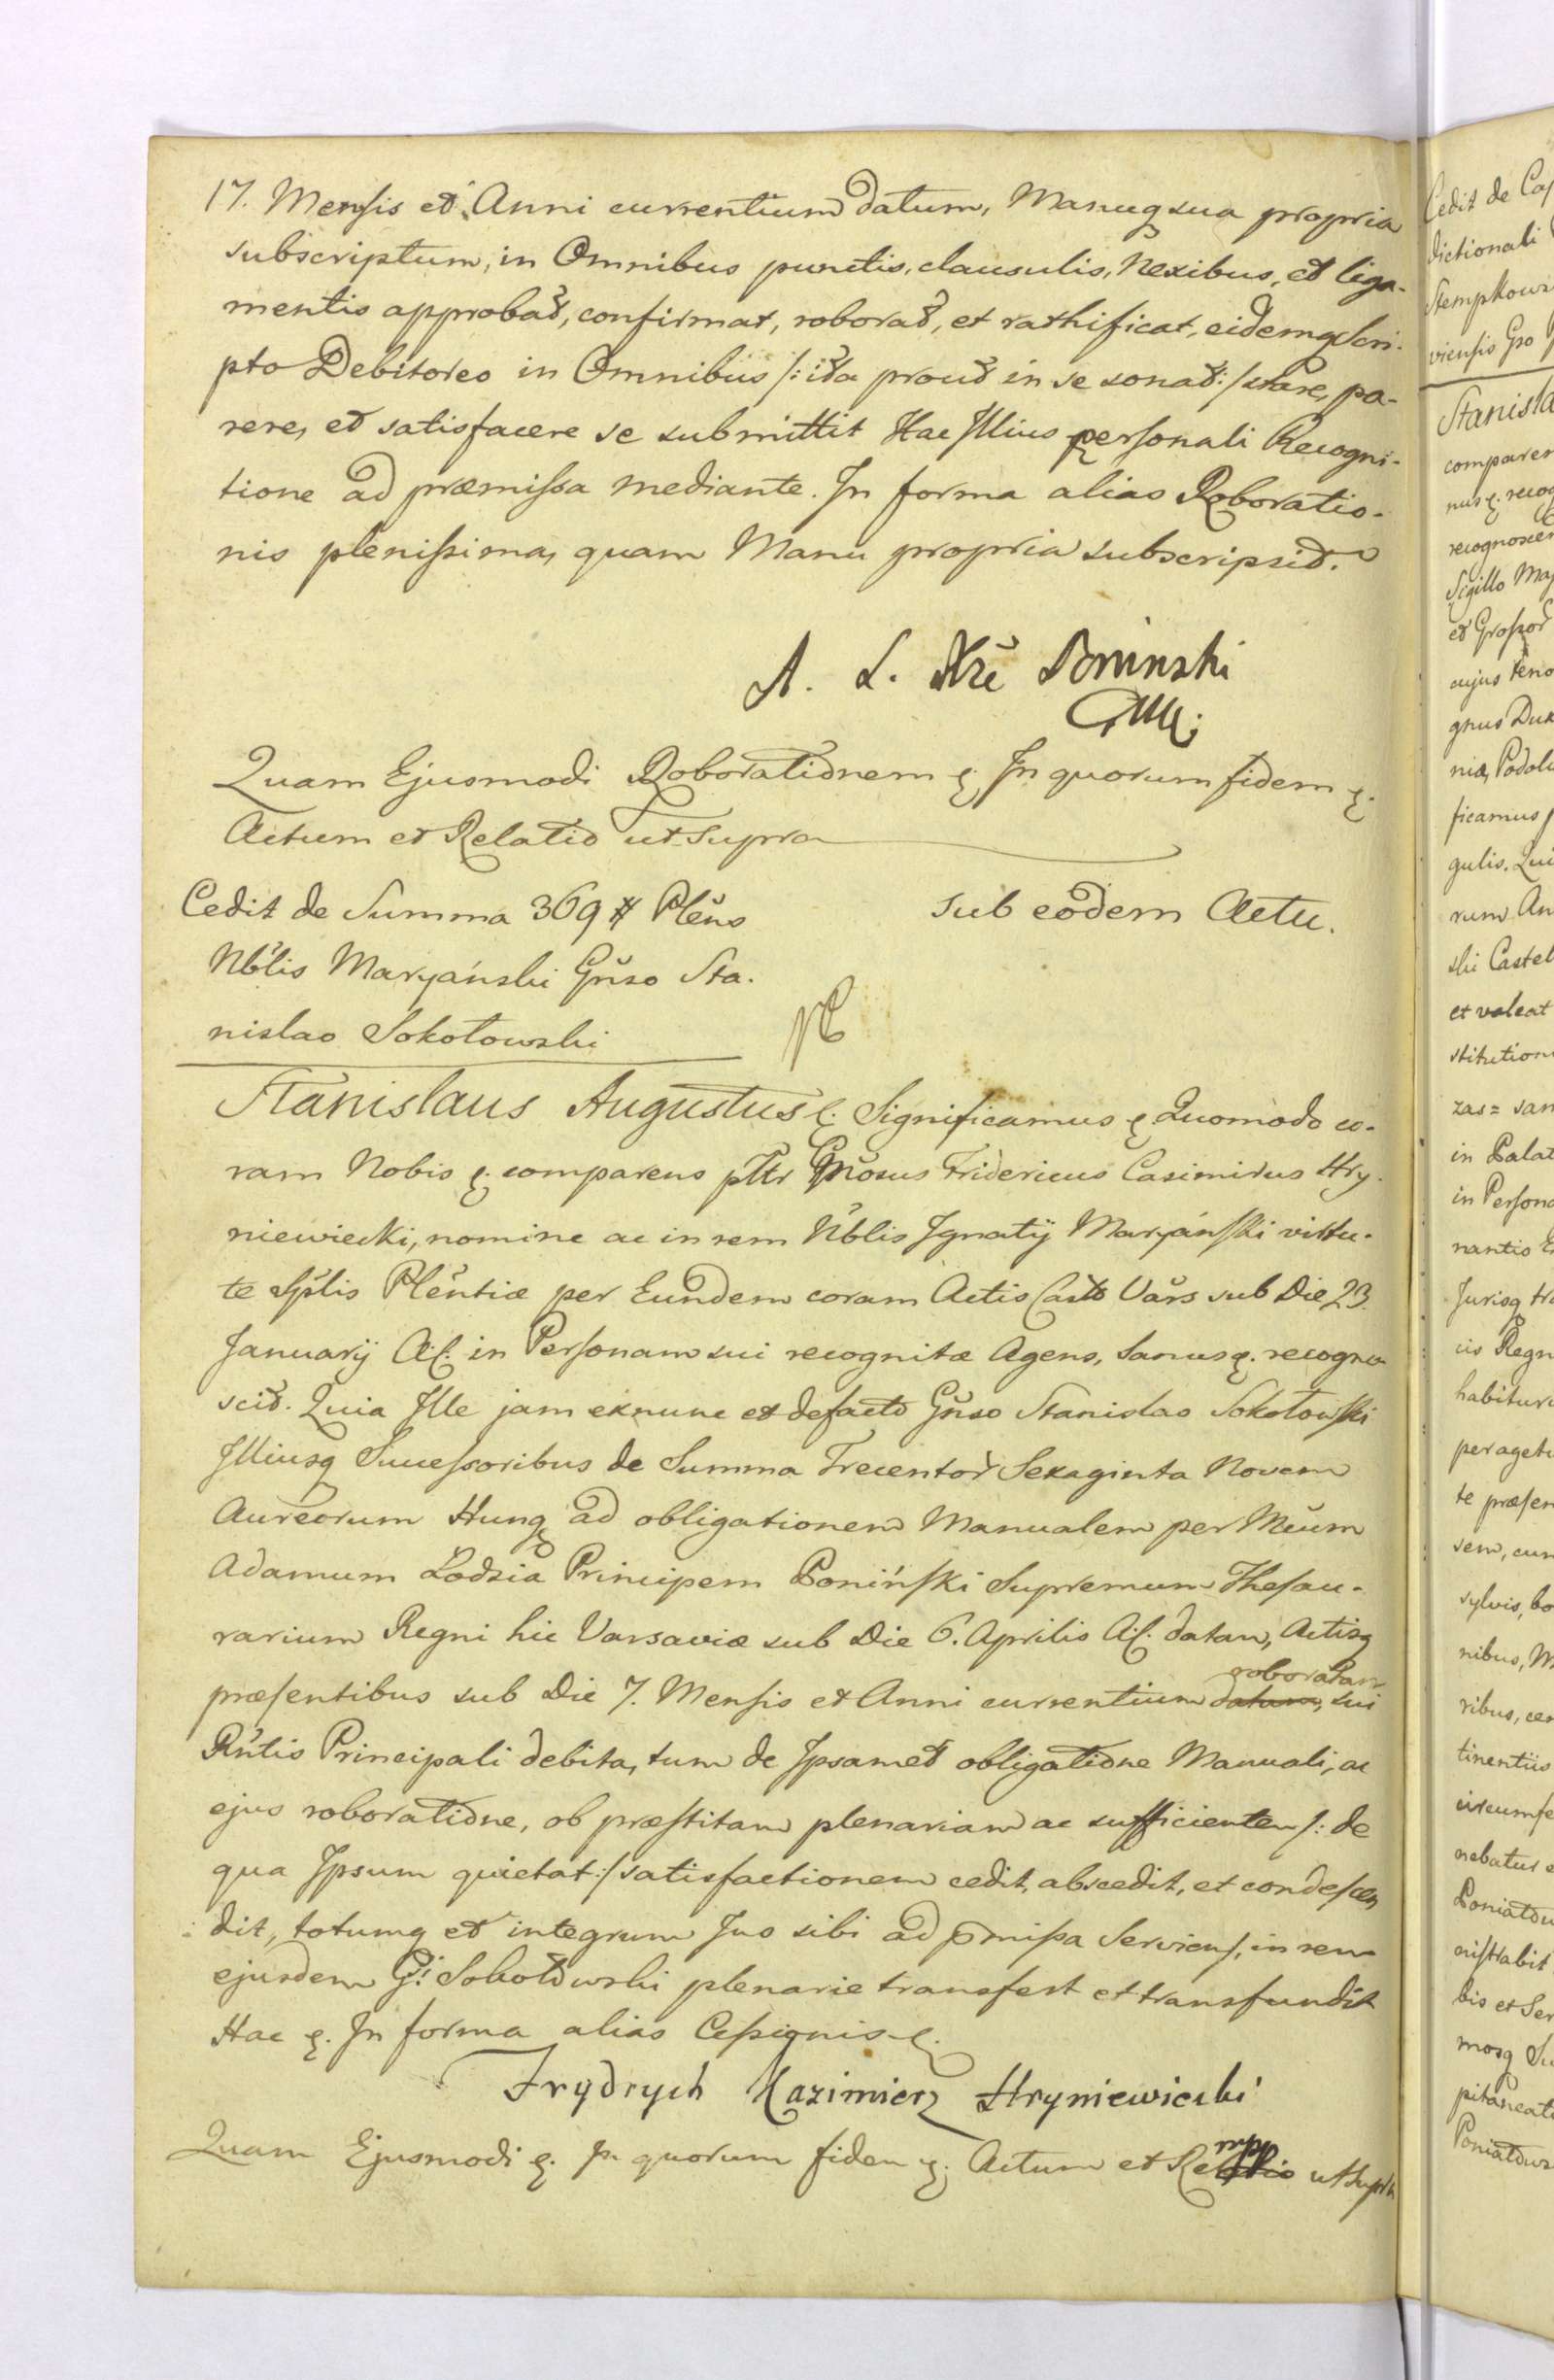 17. Mensis et Anni currentium datum, Manuq sua propria
subscriptum, in Omnibus punctis, clausulis, Nexibus, et liga-
mentis approbat, confirmat, roborat, et rathificat, eidemq Scri-
pto Debitoreo in Omnibus /: ita prout in se sonat :/ stare, pa-
rere, et satisfacere se submittit Hac Illius personali Recogni-
tione ad præmissa mediante. In forma alias Roboratio-
nis plenissima, quam Manu propria subscripsit.
A. L. Xże Poninski
Quam Ejusmodi Roborationem ę. In quorum fidem ę.
Actum et Relatio ut supra
Cedit de Summa 369 # Pleňs
sub eodem Actu.
Nb̃lis Maryánski Gňso Sta-
nislao Sokołowski
Stanislaus Augustus ę. Significamus ę. Quomodo co-
ram Nobis ę. comparens pltr Gňosus Fridericus Casimirus Hry-
niewiecki, nomine ac in rem Nb̃lis Ignatij Maryánski virtu-
te Splis Pleňtiæ per Eundem coram Actis Casts Vars sub Die 23.
Januarij A.C. in Personam sui recognitæ Agens, Sanus ę. recogno-
scit. Quia Ille jam exnunc et defacto Gňso Stanislao Sokołowski
Illiusq Successoribus de Summa Trecentor Sexaginta Novem
Aureorum Hung ad obligationem Manualem per Mčum
Adamum Łodzia Principem Poniński Supremum Thesau-
rarium Regni hic Varsaviæ sub Die 6. Aprilis A.C. datam, Actisq
roboratam
præsentibus sub Die 7. Mensis et Anni currentium datam, sui
Pňtis Principali debita, tum de Ipsamet obligatione Manuali, ac
ejus roboratione, ob præstitam plenariam ac sufficientem /: de
qua Ipsum quietat :/ satisfactionem cedit, abscedit, et condescen
dit, totumq et integrum Jus sibi ad pmissa Serviens, in rem
ejusdem G: Sokołowski plenarie transfert et transfundit
Hac ę. In forma alias Cessionis ę.
Frydrych Kazimierz Hryniewiecki
mpp
Quam Ejusmodi ę. In quorum fidem ę. Actum et Relatio ut supra
Cedit de
dictionali
Stempkows
viensis Gro
Stanisla
comparen
nus ę. recog
recognoscen
Sigillo Maj
et Grossor
cujus teno
gnus Dux
niæ, Podol
ficamus
gulis. Qui
rum An
ski Castel
et valeat
stitution
zas = san
in Palat
in Person
nantis
Jurisq tra
cis Regn
habitur
perageti
te præsen
sem, cum
sylvis, bo
nibus,
ribus, cer
tinentiis
circumfe
nebatur e
Poniatow
nistrabit
bis et Ser
mosq Su
pitaneat
Poniatows